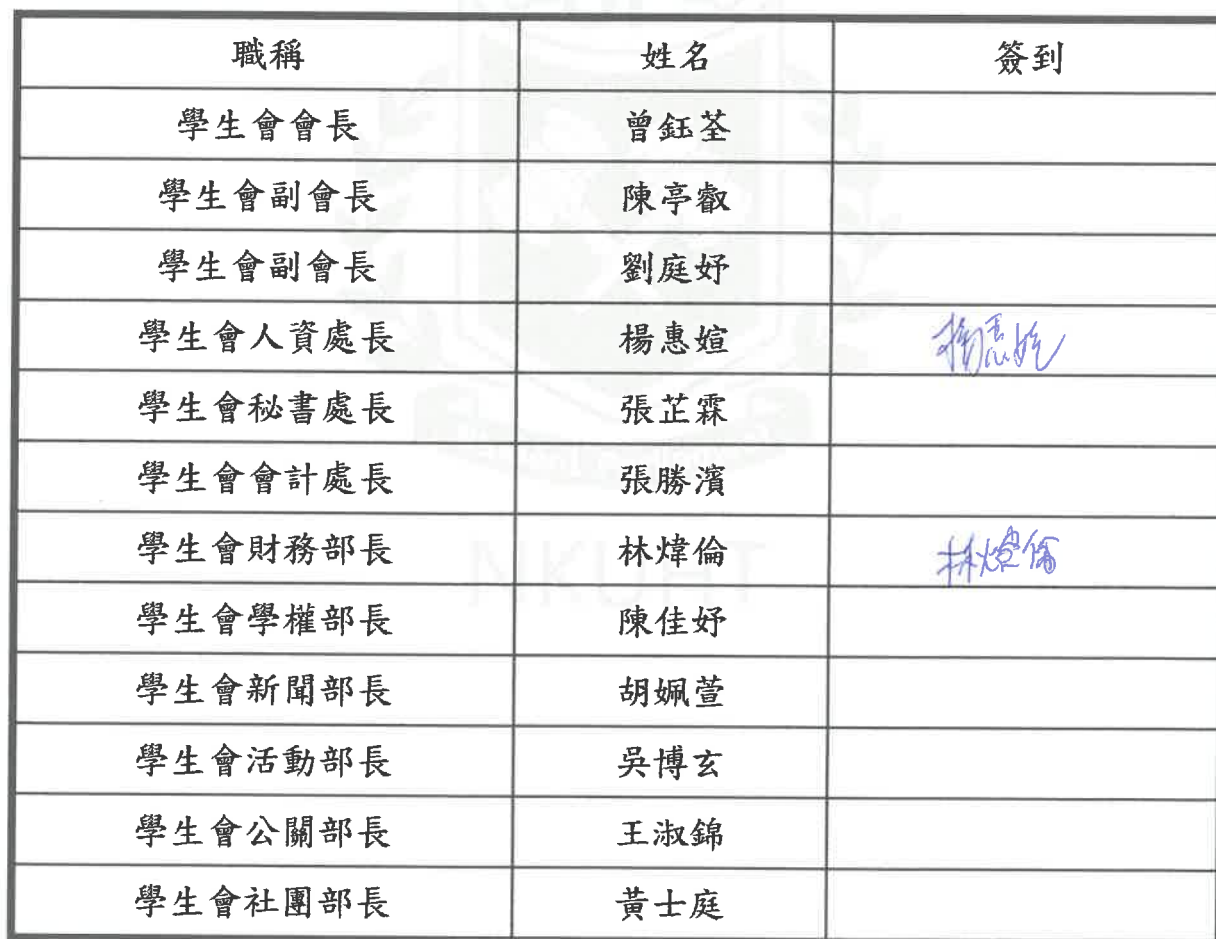 職稱 姓名 簽到
學生會會長 曾鈺荃
學生會副會長 陳亭叡
學生會副會長 劉庭妤
學生會人資處長 楊惠媗 楊惠媗
學生會秘書處長 張芷霖
學生會會計處長 張勝濱
學生會財務部長 林煒倫 林煒倫
學生會學權部長 陳佳妤
學生會新聞部長 胡姵萱
學生會活動部長 吳博玄
學生會公關部長 王淑錦
學生會社團部長 黃士庭
NKUHT